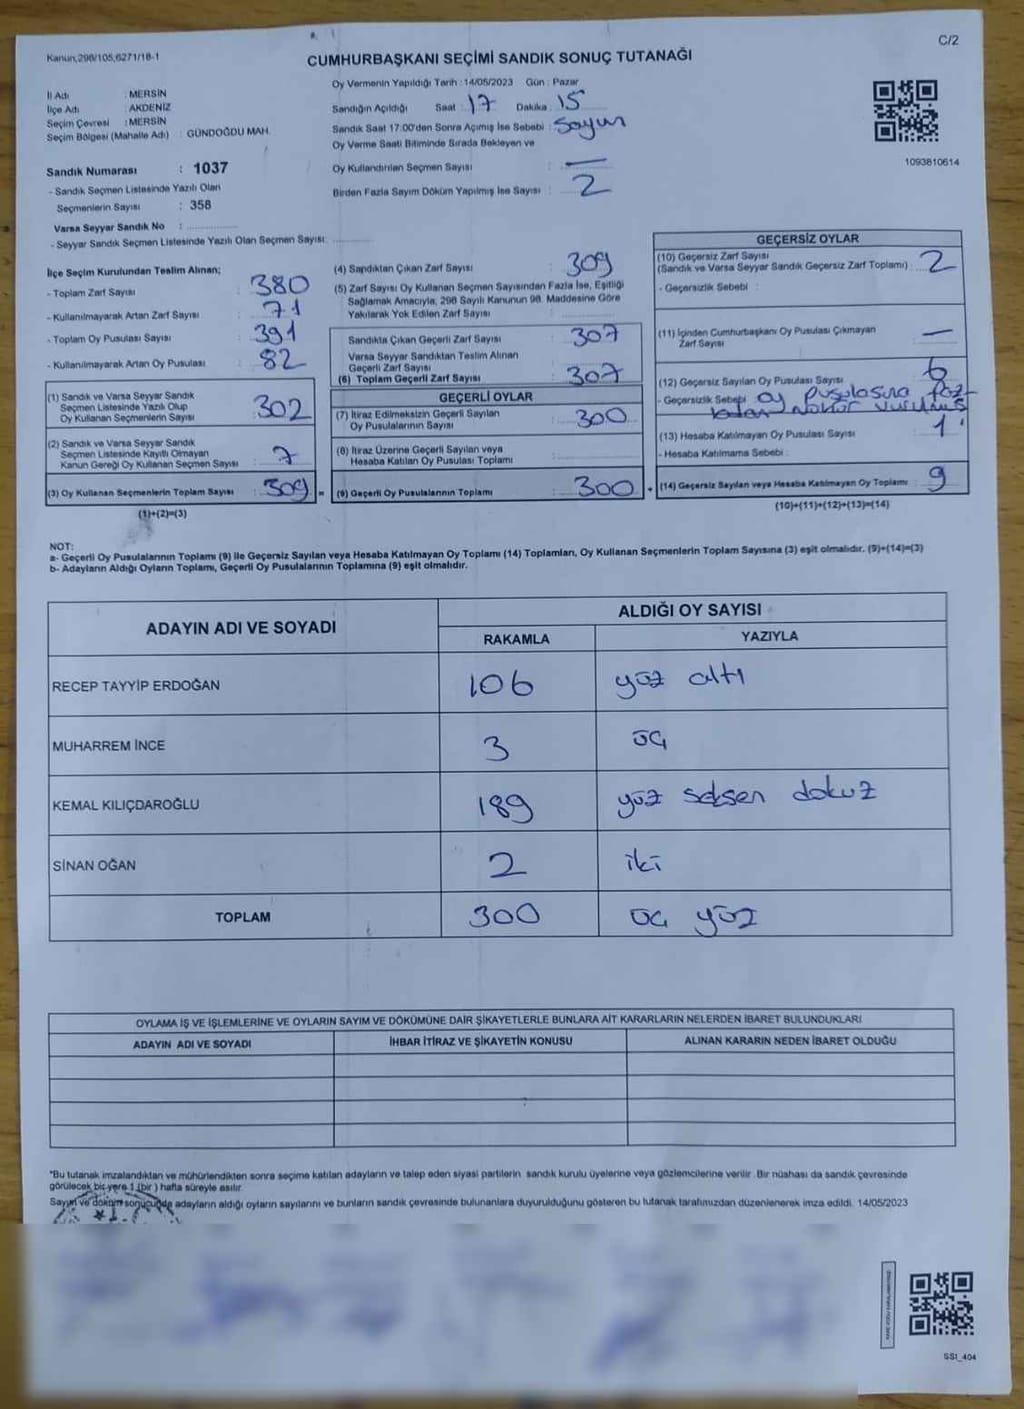 Kanun,298/105,6271/18-1
C/2
CUMHURBAŞKANI SEÇİMİ SANDIK SONUÇ TUTANAĞI
İl Adı : MERSİN
İlçe Adı : AKDENİZ
Seçim Çevresi : MERSİN
Seçim Bölgesi (Mahalle Adı) : GÜNDOĞDU MAH.
Sandık Numarası : 1037
- Sandık Seçmen Listesinde Yazılı Olan
Seçmenlerin Sayısı : 358
Varsa Seyyar Sandık No :
- Seyyar Sandık Seçmen Listesinde Yazılı Olan Seçmen Sayısı:
Oy Vermenin Yapıldığı Tarih :14/05/2023 Gün : Pazar
Sandığın Açıldığı Saat : 17 Dakika : 15
Sandık Saat 17:00'den Sonra Açılmış İse Sebebi : Sayım
Oy Verme Saati Bitiminde Sırada Bekleyen ve
Oy Kullandırılan Seçmen Sayısı : —
Birden Fazla Sayım Döküm Yapılmış İse Sayısı : 2
1093810614
İlçe Seçim Kurulundan Teslim Alınan;
- Toplam Zarf Sayısı : 380
- Kullanılmayarak Artan Zarf Sayısı : 71
- Toplam Oy Pusulası Sayısı : 391
- Kullanılmayarak Artan Oy Pusulası : 82
(1) Sandık ve Varsa Seyyar Sandık
Seçmen Listesinde Yazılı Olup
Oy Kullanan Seçmenlerin Sayısı : 302
(2) Sandık ve Varsa Seyyar Sandık
Seçmen Listesinde Kayıtlı Olmayan
Kanun Gereği Oy Kullanan Seçmen Sayısı : 7
(3) Oy Kullanan Seçmenlerin Toplam Sayısı : 309 =
(1)+(2)=(3)
(4) Sandıktan Çıkan Zarf Sayısı : 309
(5) Zarf Sayısı Oy Kullanan Seçmen Sayısından Fazla İse, Eşitliği
Sağlamak Amacıyla, 298 Sayılı Kanunun 98. Maddesine Göre
Yakılarak Yok Edilen Zarf Sayısı :
Sandıkta Çıkan Geçerli Zarf Sayısı : 307
Varsa Seyyar Sandıktan Teslim Alınan
Geçerli Zarf Sayısı :
(6) Toplam Geçerli Zarf Sayısı : 307
GEÇERLİ OYLAR
(7) İtiraz Edilmeksizin Geçerli Sayılan
Oy Pusulalarının Sayısı : 300
(8) İtiraz Üzerine Geçerli Sayılan veya
Hesaba Katılan Oy Pusulası Toplamı :
(9) Geçerli Oy Pusulalarının Toplamı : 300 +
GEÇERSİZ OYLAR
(10) Geçersiz Zarf Sayısı
(Sandık ve Varsa Seyyar Sandık Geçersiz Zarf Toplamı) : 2
- Geçersizlik Sebebi :
(11) İçinden Cumhurbaşkanı Oy Pusulası Çıkmayan
Zarf Sayısı : —
(12) Geçersiz Sayılan Oy Pusulası Sayısı : 6
- Geçersizlik Sebebi oy pusulasına faz-
mühür vurulmuş
(13) Hesaba Katılmayan Oy Pusulası Sayısı : 1
- Hesaba Katılmama Sebebi :
(14) Geçersiz Sayılan veya Hesaba Katılmayan Oy Toplamı : 9
(10)+(11)+(12)+(13)=(14)
NOT:
a- Geçerli Oy Pusulalarının Toplamı (9) ile Geçersiz Sayılan veya Hesaba Katılmayan Oy Toplamı (14) Toplamları, Oy Kullanan Seçmenlerin Toplam Sayısına (3) eşit olmalıdır. (9)+(14)=(3)
b- Adayların Aldığı Oyların Toplamı, Geçerli Oy Pusulalarının Toplamına (9) eşit olmalıdır.
ADAYIN ADI VE SOYADI
ALDIĞI OY SAYISI
RAKAMLA YAZIYLA
RECEP TAYYİP ERDOĞAN 106 yüz altı
MUHARREM İNCE 3 üç
KEMAL KILIÇDAROĞLU 189 yüz seksen dokuz
SİNAN OĞAN 2 iki
TOPLAM 300 üç yüz
OYLAMA İŞ VE İŞLEMLERİNE VE OYLARIN SAYIM VE DÖKÜMÜNE DAİR ŞİKAYETLERLE BUNLARA AİT KARARLARIN NELERDEN İBARET BULUNDUKLARI
ADAYIN ADI VE SOYADI İHBAR İTİRAZ VE ŞİKAYETİN KONUSU ALINAN KARARIN NEDEN İBARET OLDUĞU
*Bu tutanak imzalandıktan ve mühürlendikten sonra seçime katılan adayların ve talep eden siyasi partilerin sandık kurulu üyelerine veya gözlemcilerine verilir. Bir nüshası da sandık çevresinde
görülecek bir yere 1 (bir) hafta süreyle asılır.
Sayım ve döküm sonucunda adayların aldığı oyların sayılarını ve bunların sandık çevresinde bulunanlara duyurulduğunu gösteren bu tutanak tarafımızdan düzenlenerek imza edildi. 14/05/2023
SS1_404